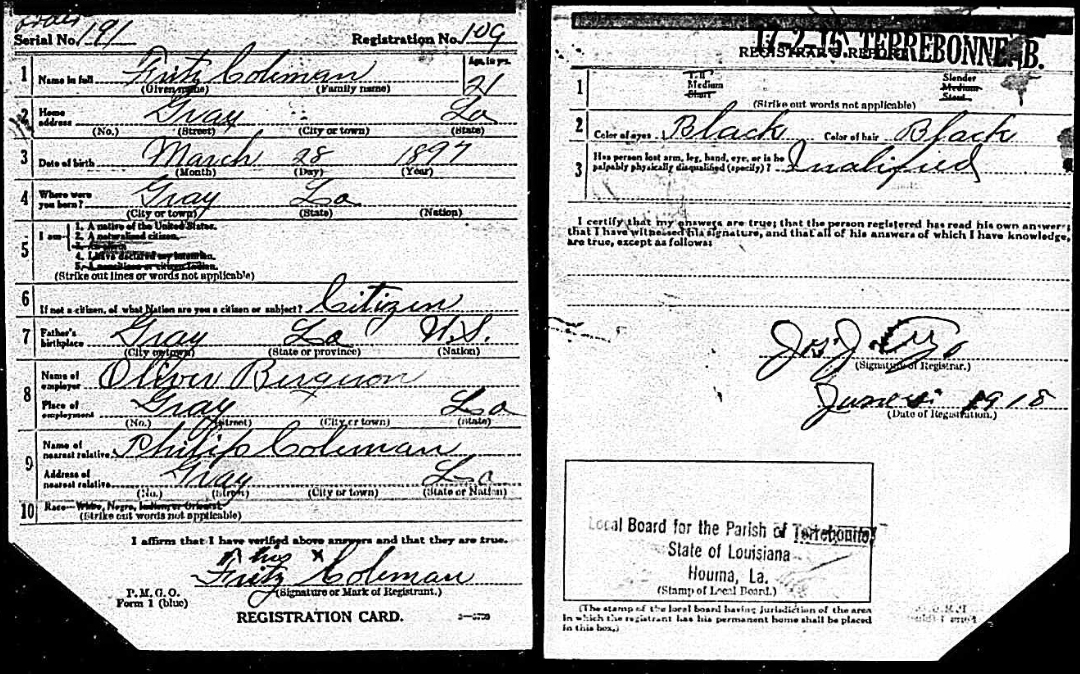 Order
Serial No. 191 Registration No. 109
1 Name in full Fritz Coleman Age, in yrs. 21
(Given name) (Family name)
2 Home address Gray La
(No.) (Street) (City or town) (State)
3 Date of birth March 28 1897
(Month) (Day) (Year)
4 Where were you born? Gray La
(City or town) (State) (Nation)
5 I am 1. A native of the United States.
2. A naturalized citizen.
3. An alien.
4. I have declared my intention.
5. A noncitizen or citizen Indian.
(Strike out lines or words not applicable)
6 If not a citizen, of what Nation are you a citizen or subject? Citizen
7 Father's birthplace Gray La U.S.
(City or town) (State or province) (Nation)
8 Name of employer Oliver Bergeron
Place of employment Gray La
(No.) (Street) (City or town) (State)
9 Name of nearest relative Philip Coleman
Address of nearest relative Gray La
(No.) (Street) (City or town) (State or Nation)
10 Race—White, Negro, Indian, or Oriental.
(Strike out words not applicable)
I affirm that I have verified above answers and that they are true.
his x
Fritz Coleman
(Signature or Mark of Registrant.)
P.M.G.O.
Form 1 (blue)
REGISTRATION CARD.
17.2.15. TERREBONNE, B.
REGISTRAR'S REPORT
1 Tall Medium Short Slender Medium Stout
(Strike out words not applicable)
2 Color of eyes Black Color of hair Black
3 Has person lost arm, leg, hand, eye, or is he
palpably physically disqualified (specify)?
I certify that my answers are true; that the person registered has read his own answers;
that I have witnessed his signature, and that all of his answers of which I have knowledge,
are true, except as follows:
Jos. J.
(Signature of Registrar.)
June 1918
(Date of Registration.)
Local Board for the Parish of Terrebonne
State of Louisiana
Houma, La.
(Stamp of Local Board.)
(The stamp of the local board having jurisdiction of the area
in which the registrant has his permanent home shall be placed
in this box.)